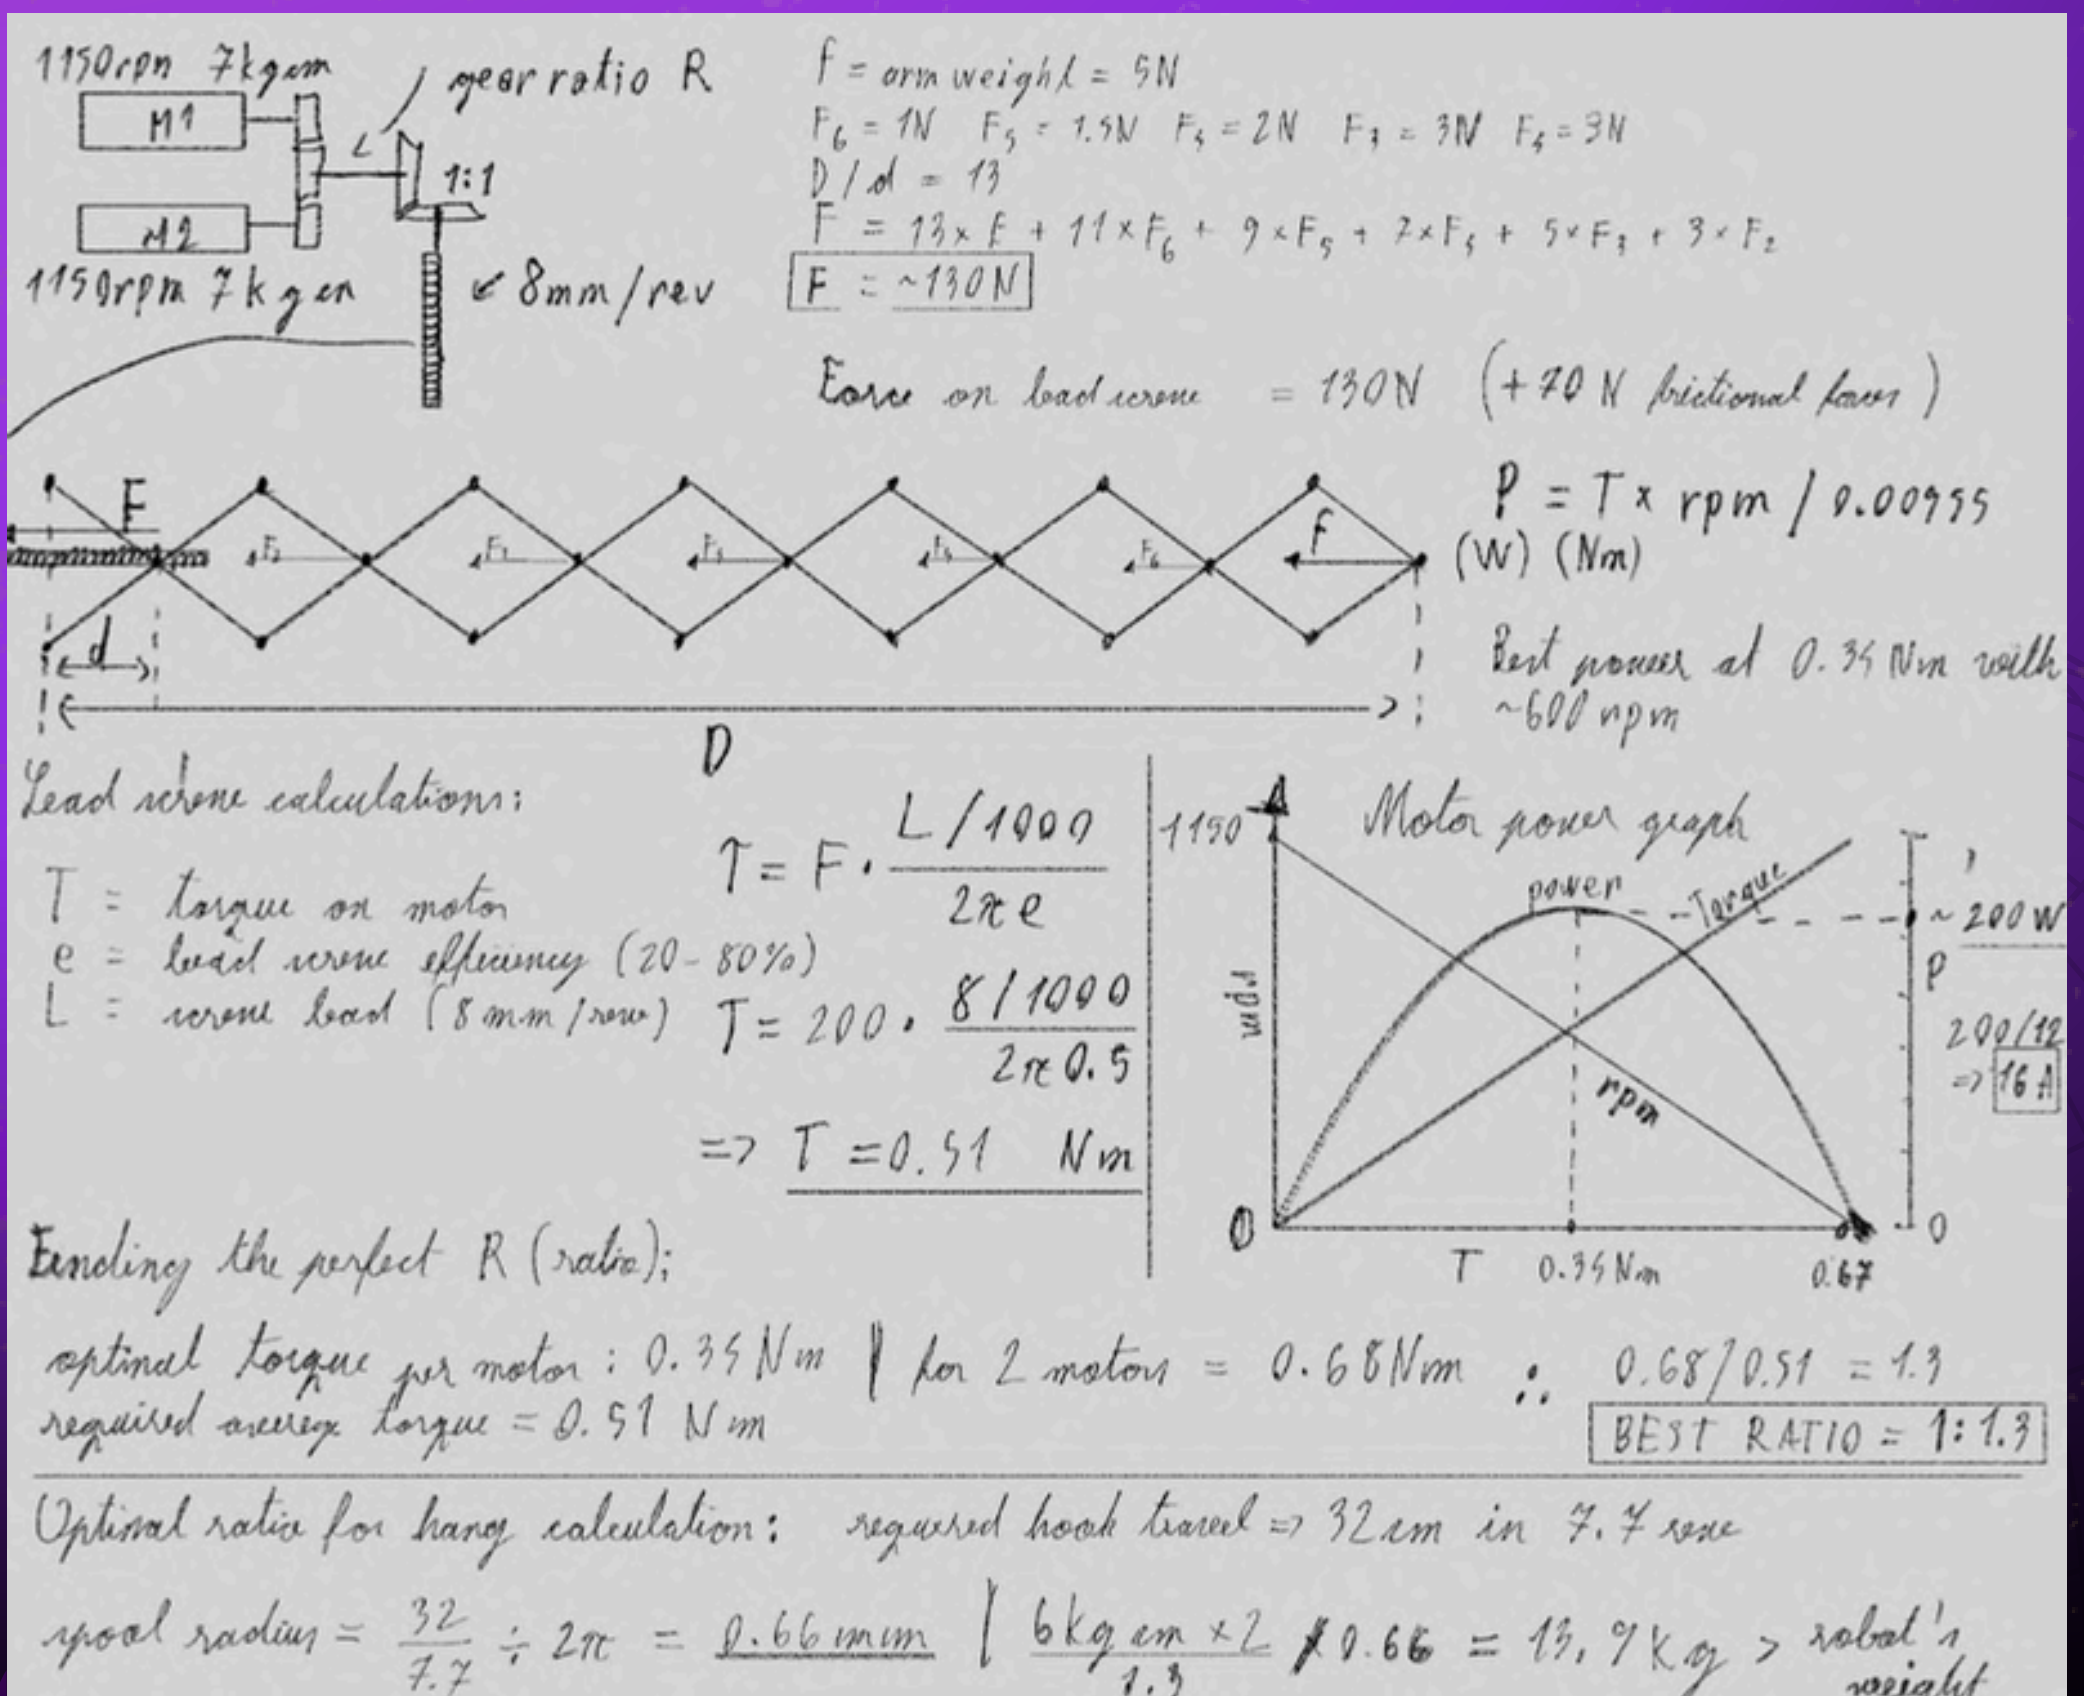 1150rpm 7kgcm
gear ratio R
M1
1:1
M2
1150rpm 7kgcm
8mm/rev
f = arm weight = 5N
F6 = 1N F5 = 1.5N F4 = 2N F3 = 3N F2 = 3N
D/d = 13
F = 13×f + 11×F6 + 9×F5 + 7×F4 + 5×F3 + 3×F2
F = ~130N
Force on lead screw = 130N (+70N frictional forces)
F
F2 F3 F4 F5 F6 f
d
D
P = T × rpm / 0.00955
(W) (Nm)
Best power at 0.34 Nm with
~600 rpm
Lead screw calculations:
T = torque on motor
e = lead screw efficiency (20-80%)
L = screw lead (8mm/rev)
T = F · L/1000
2πe
T = 200 · 8/1000
2π0.5
=> T = 0.51 Nm
Motor power graph
1150
power
Torque
~200W
rpm
P
200/12
=> 16A
rpm
0
T 0.34Nm 0.67
0
Finding the perfect R (ratio):
optimal torque per motor: 0.34Nm | for 2 motors = 0.68Nm ∴ 0.68/0.51 = 1.3
required average torque = 0.51 Nm
BEST RATIO = 1:1.3
Optimal ratio for hang calculation: required hook travel => 32cm in 7.7 rev
spool radius = 32
7.7 ÷ 2π = 0.66mm | 6kgcm×2
1.3 /0.66 = 13.9kg > robot's
weight